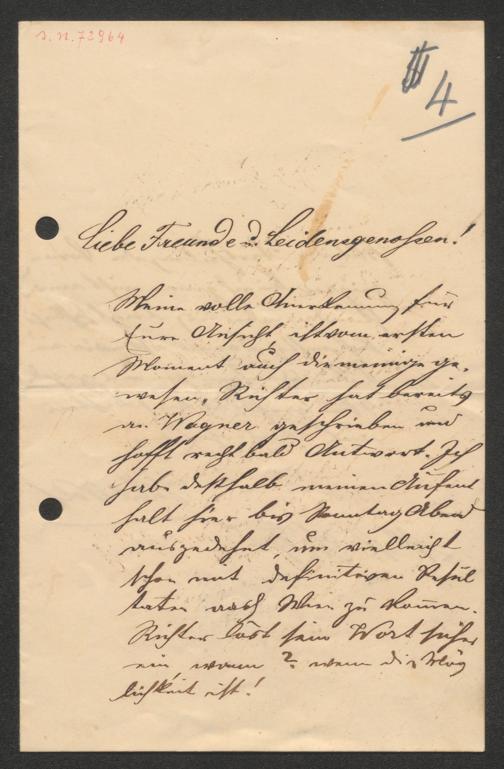 I. N. 72964
4
Liebe Freunde u. Leidensgenossen!
Meine volle Anerkennung für
Eure Ansicht, ist vom ersten
Moment auch die meinige ge-
wesen. Richter hat bereits
an Wagner geschrieben und
hofft recht bald Antwort. Ich
habe deßhalb meinen Aufent
halt hier bis Sonntag Abend
ausgedehnt, um vielleicht
schon mit definitiven Resul
taten nach Wien zu kommen.
Richter löst sein Wort sicher
ein, wann? wenn die Mög
lichkeit ist!